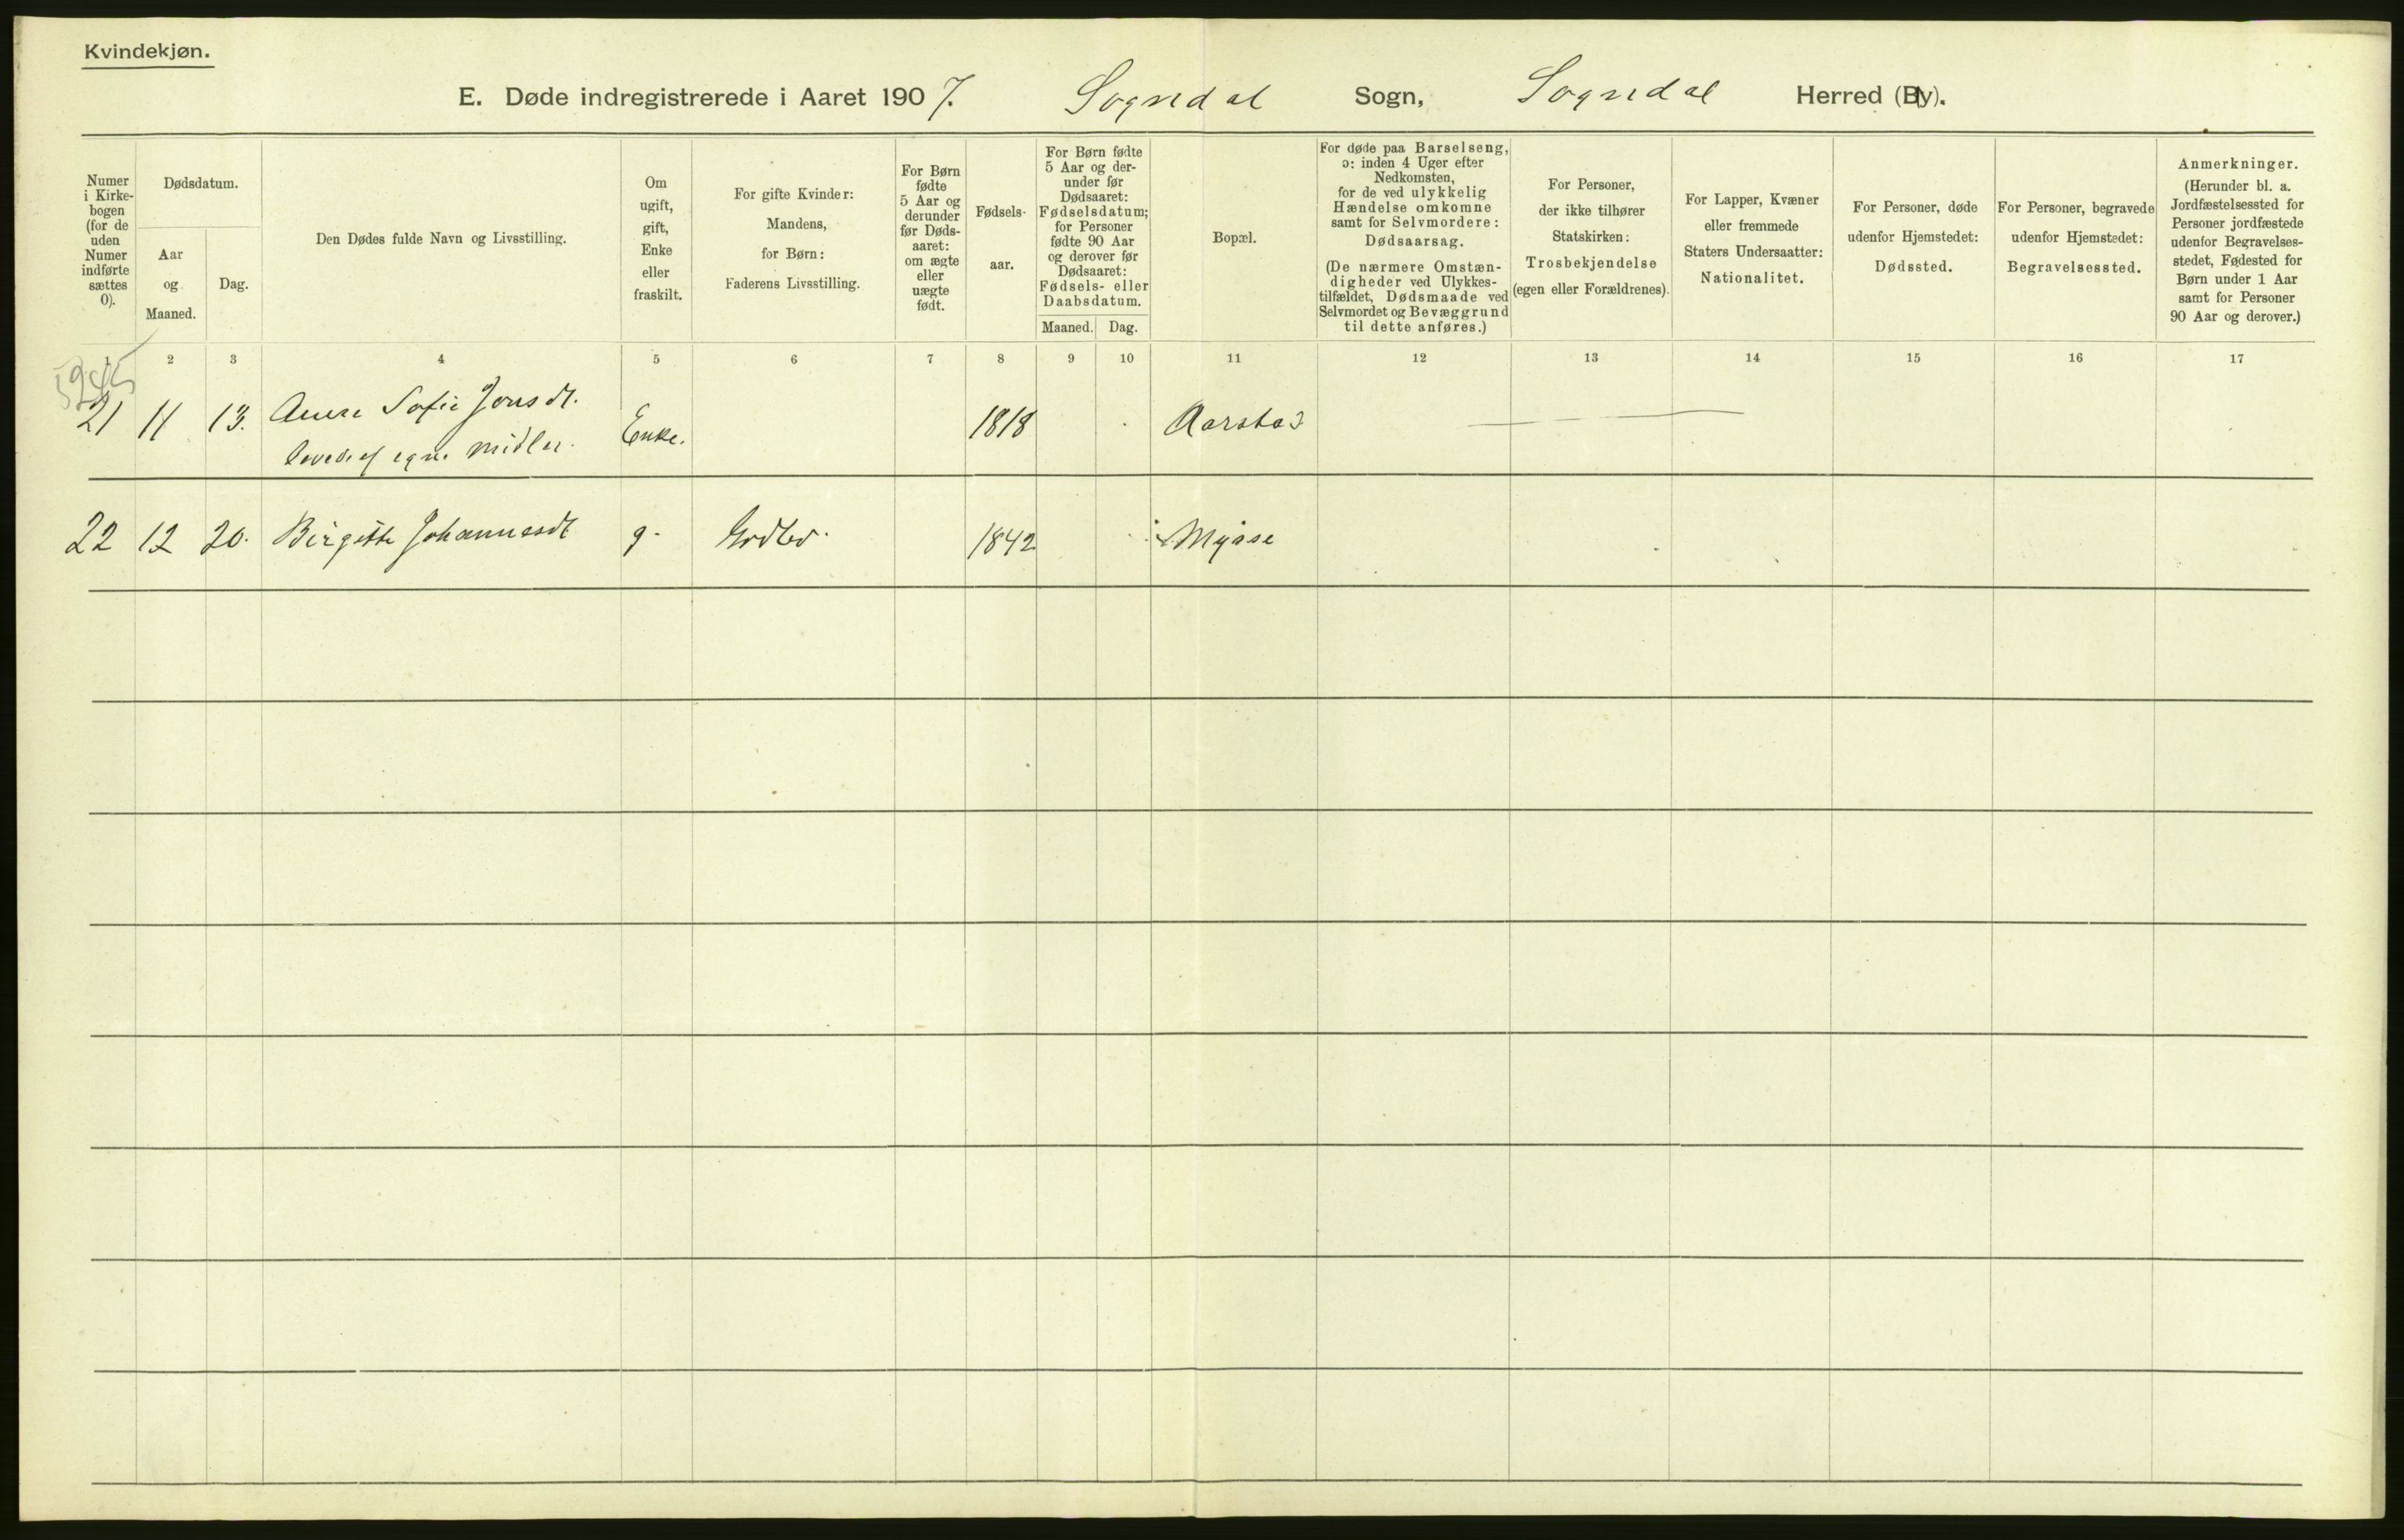 Kvindekjøn.
E. Døde indregistrerede i Aaret 1907. Sogndal Sogn, Sogndal Herred (By).
Numer
i Kirke-
bogen
(for de
uden
Numer
indførte
sættes
0).
Dødsdatum.
Aar
og
Maaned.
Dag.
Den Dødes fulde Navn og Livsstilling.
Om
ugift,
gift,
Enke
eller
fraskilt.
For gifte Kvinder:
Mandens,
for Børn:
Faderens Livsstilling.
For Børn
fødte
5 Aar og
derunder
før Døds-
aaret:
om ægte
eller
uægte
født.
Fødsels-
aar.
For Børn fødte
5 Aar og der-
under før
Dødsaaret:
Fødselsdatum;
for Personer
fødte 90 Aar
og derover før
Dødsaaret:
Fødsels- eller
Daabsdatum.
Maaned. Dag.
Bopæl.
For døde paa Barselseng,
ɔ: inden 4 Uger efter
Nedkomsten,
for de ved ulykkelig
Hændelse omkomne
samt for Selvmordere:
Dødsaarsag.
(De nærmere Omstæn-
digheder ved Ulykkes-
tilfældet, Dødsmaade ved
Selvmordet og Bevæggrund
til dette anføres.)
For Personer,
der ikke tilhører
Statskirken:
Trosbekjendelse
(egen eller Forældrenes).
For Lapper, Kvæner
eller fremmede
Staters Undersaatter:
Nationalitet.
For Personer, døde
udenfor Hjemstedet:
Dødssted.
For Personer, begravede
udenfor Hjemstedet:
Begravelsessted.
Anmerkninger.
(Herunder bl. a.
Jordfæstelsessted for
Personer jordfæstede
udenfor Begravelses-
stedet, Fødested for
Børn under 1 Aar
samt for Personer
90 Aar og derover.)
1 2 3 4 5 6 7 8 9 10 11 12 13 14 15 16 17
21 11 13. Anne Sofie Jonsdt. Enke. 1818 Aarstad
levede af egne midler.
22 12 20. Birgitte Johannesdt g. 1842